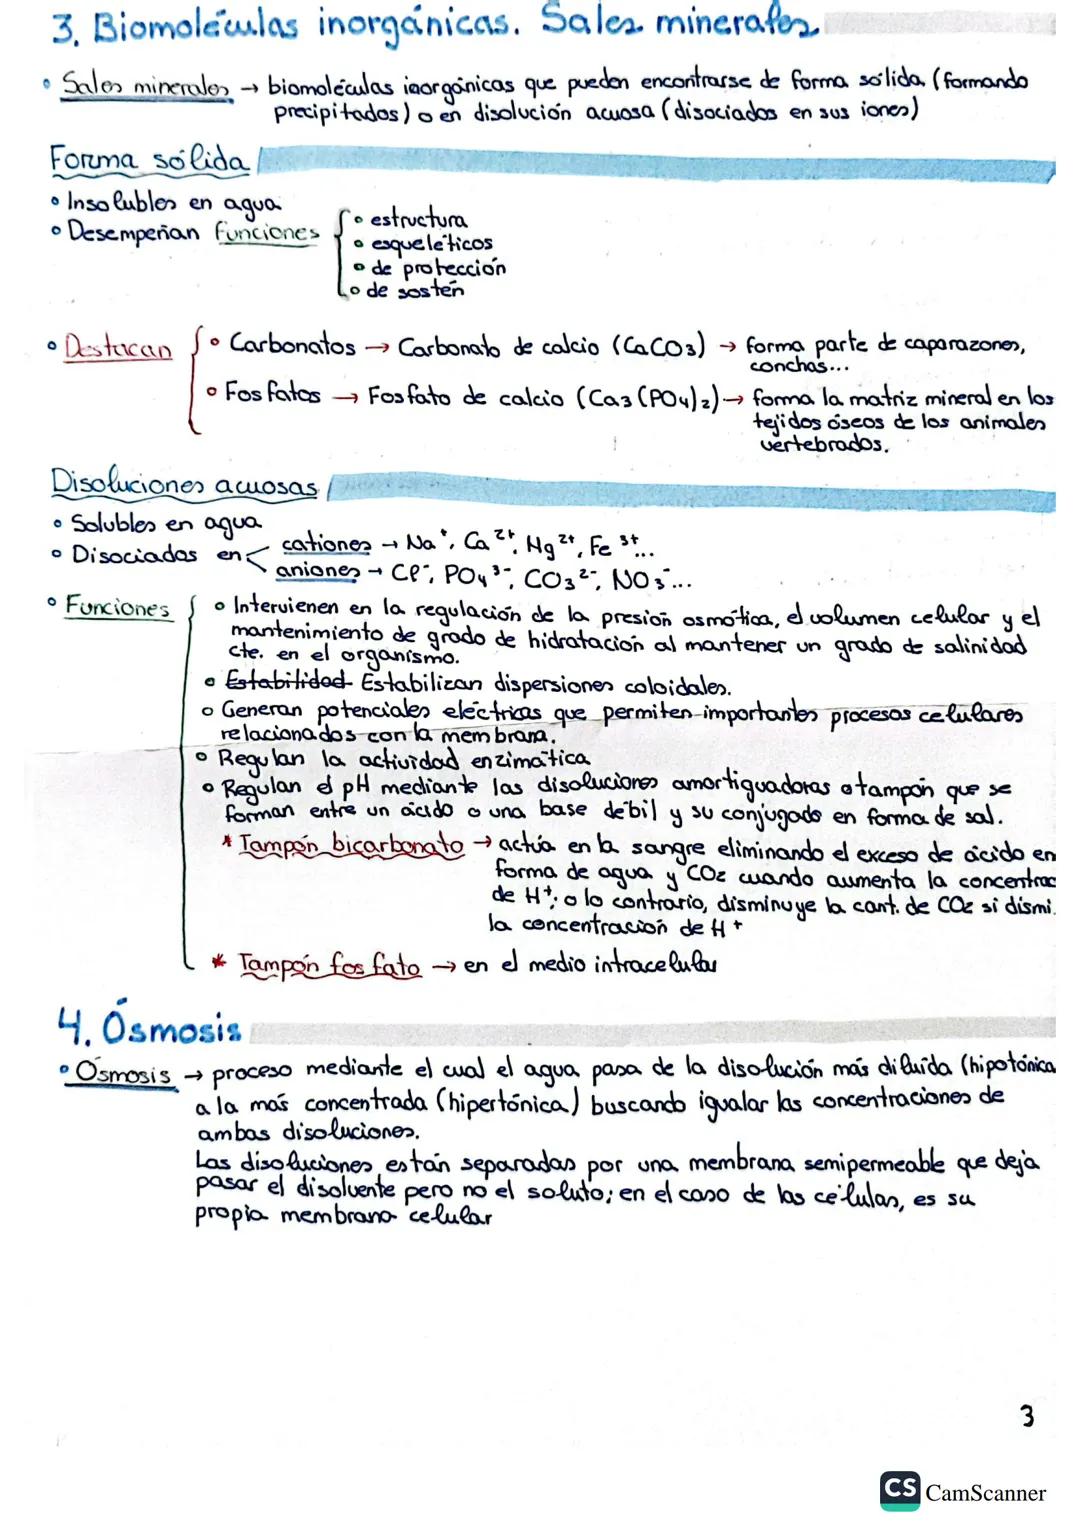 3. Biomoléculas inorgánicas. Sales minerales
• Sales minerales → biomoléculas inorgánicas que pueden encontrarse de forma sólida (formando
precipitados) o en disolución acuosa (disociados en sus iones)
Forma sólida
• Insolubles en agua
• Desempeñan funciones
• estructura
• esqueléticos
• de protección
• de sostén
• Destacan
• Carbonatos → Carbonato de calcio (CaCO3) → forma parte de caparazones,
conchas...
• Fosfatos → Fosfato de calcio (Ca3(PO4)2) → forma la matriz mineral en los
tejidos óseos de los animales
vertebrados.
Disoluciones acuosas
• Solubles en agua
• Disociadas en
cationes → Na⁺, Ca²⁺, Mg²⁺, Fe³⁺...
aniones → Cl⁻, PO4³⁻, CO3²⁻, NO3⁻...
• Funciones
• Intervienen en la regulación de la presión osmótica, el volumen celular y el
mantenimiento de grado de hidratación al mantener un grado de salinidad
cte. en el organismo.
• Estabilidad Estabilizan dispersiones coloidales.
• Generan potenciales eléctricas que permiten importantes procesos celulares
relacionados con la membrana.
• Regulan la actividad enzimática
• Regulan el pH mediante las disoluciones amortiguadoras o tampón que se
forman entre un ácido o una base débil y su conjugado en forma de sal.
* Tampón bicarbonato → actúa en la sangre eliminando el exceso de ácido en
forma de agua y CO2 cuando aumenta la concentrac
de H⁺; o lo contrario, disminuye la cant. de CO2 si dismi.
la concentración de H⁺
* Tampón fosfato → en el medio intracelular
4. Ósmosis
• Ósmosis → proceso mediante el cual el agua pasa de la disolución más diluída (hipotónica
a la más concentrada (hipertónica) buscando igualar las concentraciones de
ambas disoluciones.
Las disoluciones están separadas por una membrana semipermeable que deja
pasar el disolvente pero no el soluto; en el caso de las células, es su
propia membrana celular
3
CS CamScanner